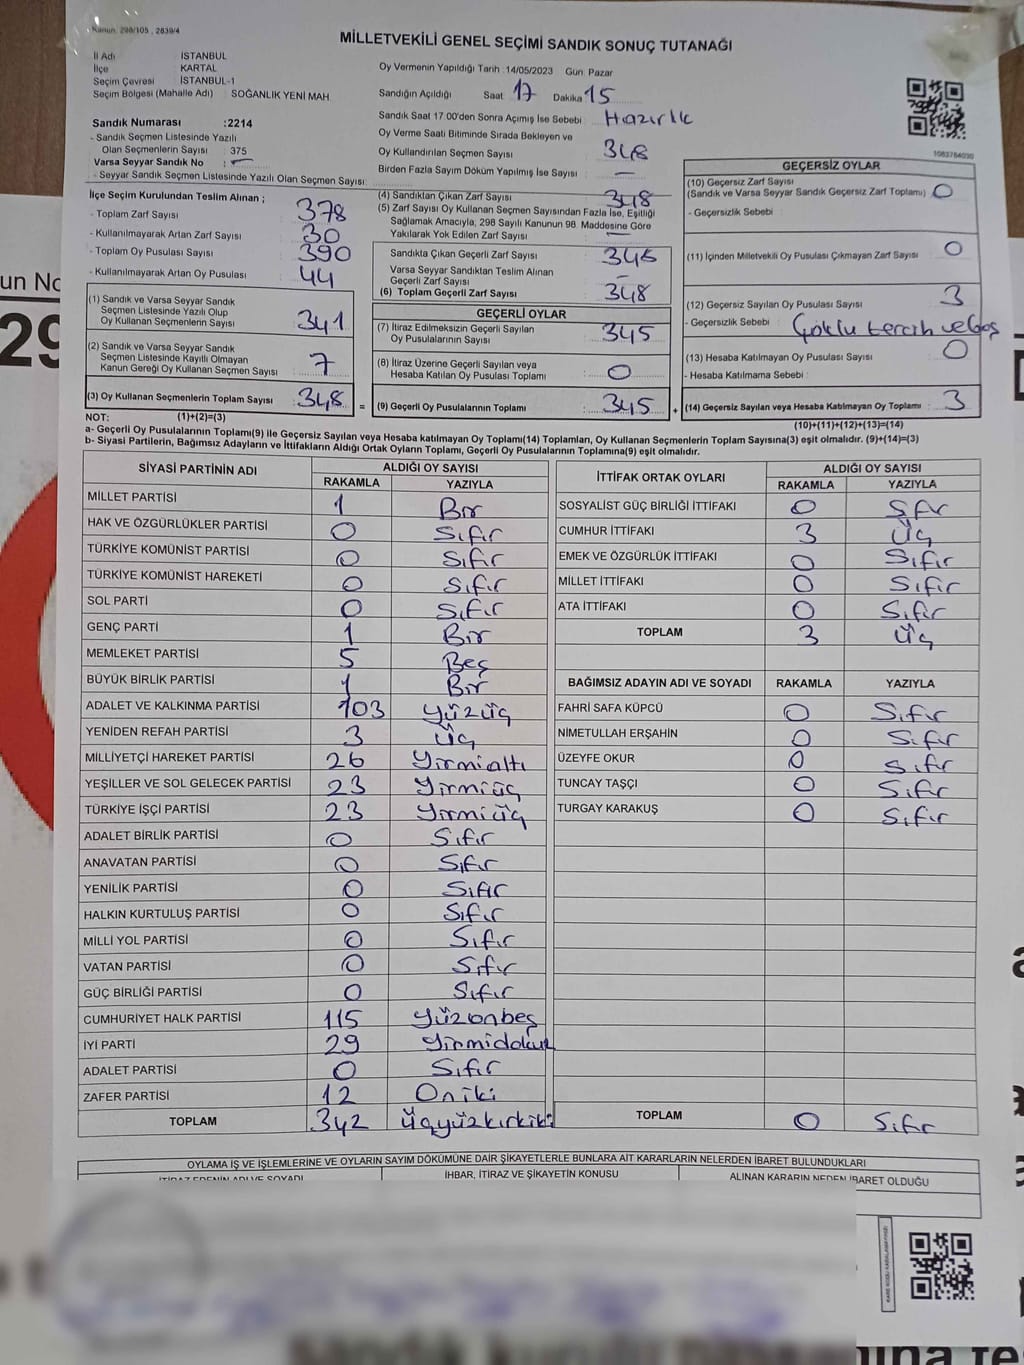 Kanun: 298/105, 2839/4
MİLLETVEKİLİ GENEL SEÇİMİ SANDIK SONUÇ TUTANAĞI
İl Adı İSTANBUL
İlçe KARTAL
Seçim Çevresi İSTANBUL-1
Seçim Bölgesi (Mahalle Adı) SOĞANLIK YENİ MAH.
Oy Vermenin Yapıldığı Tarih :14/05/2023 Gün: Pazar
Sandığın Açıldığı Saat 17 Dakika 15
Sandık Saat 17.00'den Sonra Açımış İse Sebebi : Hazırlık
Oy Verme Saati Bitiminde Sırada Bekleyen ve
Oy Kullandırılan Seçmen Sayısı : 348
Birden Fazla Sayım Döküm Yapılmış İse Sayısı : —
1083784030
Sandık Numarası :2214
- Sandık Seçmen Listesinde Yazılı
Olan Seçmenlerin Sayısı : 375
Varsa Seyyar Sandık No : —
- Seyyar Sandık Seçmen Listesinde Yazılı Olan Seçmen Sayısı:
İlçe Seçim Kurulundan Teslim Alınan ;
- Toplam Zarf Sayısı : 378
- Kullanılmayarak Artan Zarf Sayısı : 30
- Toplam Oy Pusulası Sayısı : 390
- Kullanılmayarak Artan Oy Pusulası : 44
(1) Sandık ve Varsa Seyyar Sandık
Seçmen Listesinde Yazılı Olup
Oy Kullanan Seçmenlerin Sayısı : 341
(2) Sandık ve Varsa Seyyar Sandık
Seçmen Listesinde Kayıtlı Olmayan
Kanun Gereği Oy Kullanan Seçmen Sayısı : 7
(3) Oy Kullanan Seçmenlerin Toplam Sayısı : 348 =
(4) Sandıktan Çıkan Zarf Sayısı : 348
(5) Zarf Sayısı Oy Kullanan Seçmen Sayısından Fazla İse, Eşitliği
Sağlamak Amacıyla, 298 Sayılı Kanunun 98. Maddesine Göre
Yakılarak Yok Edilen Zarf Sayısı : —
Sandıkta Çıkan Geçerli Zarf Sayısı : 345
Varsa Seyyar Sandıktan Teslim Alınan
Geçerli Zarf Sayısı : —
(6) Toplam Geçerli Zarf Sayısı : 348
GEÇERLİ OYLAR
(7) İtiraz Edilmeksizin Geçerli Sayılan
Oy Pusulalarının Sayısı : 345
(8) İtiraz Üzerine Geçerli Sayılan veya
Hesaba Katılan Oy Pusulası Toplamı : 0
(9) Geçerli Oy Pusulalarının Toplamı : 345 +
GEÇERSİZ OYLAR
(10) Geçersiz Zarf Sayısı
(Sandık ve Varsa Seyyar Sandık Geçersiz Zarf Toplamı) : 0
- Geçersizlik Sebebi :
(11) İçinden Milletvekili Oy Pusulası Çıkmayan Zarf Sayısı : 0
(12) Geçersiz Sayılan Oy Pusulası Sayısı : 3
- Geçersizlik Sebebi : Çoklu tercih ve boş
(13) Hesaba Katılmayan Oy Pusulası Sayısı : 0
- Hesaba Katılmama Sebebi :
(14) Geçersiz Sayılan veya Hesaba Katılmayan Oy Toplamı : 3
NOT: (1)+(2)=(3) (10)+(11)+(12)+(13)=(14)
a- Geçerli Oy Pusulalarının Toplamı(9) ile Geçersiz Sayılan veya Hesaba katılmayan Oy Toplamı(14) Toplamları, Oy Kullanan Seçmenlerin Toplam Sayısına(3) eşit olmalıdır. (9)+(14)=(3)
b- Siyasi Partilerin, Bağımsız Adayların ve İttifakların Aldığı Ortak Oyların Toplamı, Geçerli Oy Pusulalarının Toplamına(9) eşit olmalıdır.
SİYASİ PARTİNİN ADI ALDIĞI OY SAYISI
RAKAMLA YAZIYLA
MİLLET PARTİSİ 1 Bir
HAK VE ÖZGÜRLÜKLER PARTİSİ 0 Sıfır
TÜRKİYE KOMÜNİST PARTİSİ 0 Sıfır
TÜRKİYE KOMÜNİST HAREKETİ 0 Sıfır
SOL PARTİ 0 Sıfır
GENÇ PARTİ 1 Bir
MEMLEKET PARTİSİ 5 Beş
BÜYÜK BİRLİK PARTİSİ 1 Bir
ADALET VE KALKINMA PARTİSİ 103 Yüzüç
YENİDEN REFAH PARTİSİ 3 Üç
MİLLİYETÇİ HAREKET PARTİSİ 26 Yirmialtı
YEŞİLLER VE SOL GELECEK PARTİSİ 23 Yirmiüç
TÜRKİYE İŞÇİ PARTİSİ 23 Yirmiüç
ADALET BİRLİK PARTİSİ 0 Sıfır
ANAVATAN PARTİSİ 0 Sıfır
YENİLİK PARTİSİ 0 Sıfır
HALKIN KURTULUŞ PARTİSİ 0 Sıfır
MİLLİ YOL PARTİSİ 0 Sıfır
VATAN PARTİSİ 0 Sıfır
GÜÇ BİRLİĞİ PARTİSİ 0 Sıfır
CUMHURİYET HALK PARTİSİ 115 Yüzonbeş
İYİ PARTİ 29 Yirmidokuz
ADALET PARTİSİ 0 Sıfır
ZAFER PARTİSİ 12 Oniki
TOPLAM 342 Üçyüzkırkiki
İTTİFAK ORTAK OYLARI ALDIĞI OY SAYISI
RAKAMLA YAZIYLA
SOSYALİST GÜÇ BİRLİĞİ İTTİFAKI 0 Sıfır
CUMHUR İTTİFAKI 3 Üç
EMEK VE ÖZGÜRLÜK İTTİFAKI 0 Sıfır
MİLLET İTTİFAKI 0 Sıfır
ATA İTTİFAKI 0 Sıfır
TOPLAM 3 Üç
BAĞIMSIZ ADAYIN ADI VE SOYADI RAKAMLA YAZIYLA
FAHRİ SAFA KÜPCÜ 0 Sıfır
NİMETULLAH ERŞAHİN 0 Sıfır
ÜZEYFE OKUR 0 Sıfır
TUNCAY TAŞÇI 0 Sıfır
TURGAY KARAKUŞ 0 Sıfır
TOPLAM 0 Sıfır
OYLAMA İŞ VE İŞLEMLERİNE VE OYLARIN SAYIM DÖKÜMÜNE DAİR ŞİKAYETLERLE BUNLARA AİT KARARLARIN NELERDEN İBARET BULUNDUKLARI
İTİRAZ EDENİN ADI VE SOYADI İHBAR, İTİRAZ VE ŞİKAYETİN KONUSU ALINAN KARARIN NEDEN İBARET OLDUĞU